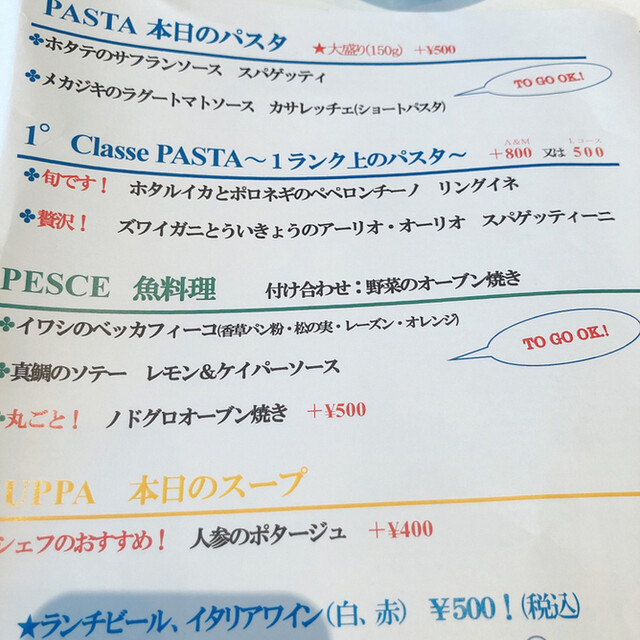 PASTA 本日のパスタ ★大盛り(150g) +¥500
✤ホタテのサフランソース スパゲッティ
TO GO OK!
✤メカジキのラグートマトソース カサレッチェ(ショートパスタ)
A&M Lコース
1° Classe PASTA～1ランク上のパスタ～ +800 又は 500
✤旬です! ホタルイカとポロネギのペペロンチーノ リングイネ
✤贅沢! ズワイガニとういきょうのアーリオ・オーリオ スパゲッティーニ
PESCE 魚料理 付け合わせ:野菜のオーブン焼き
✤イワシのベッカフィーコ(香草パン粉・松の実・レーズン・オレンジ)
TO GO OK!
✤真鯛のソテー レモン&ケイパーソース
✤丸ごと! ノドグロオーブン焼き +¥500
UPPA 本日のスープ
シェフのおすすめ! 人参のポタージュ +¥400
★ランチビール、イタリアワイン(白、赤) ¥500!(税込)